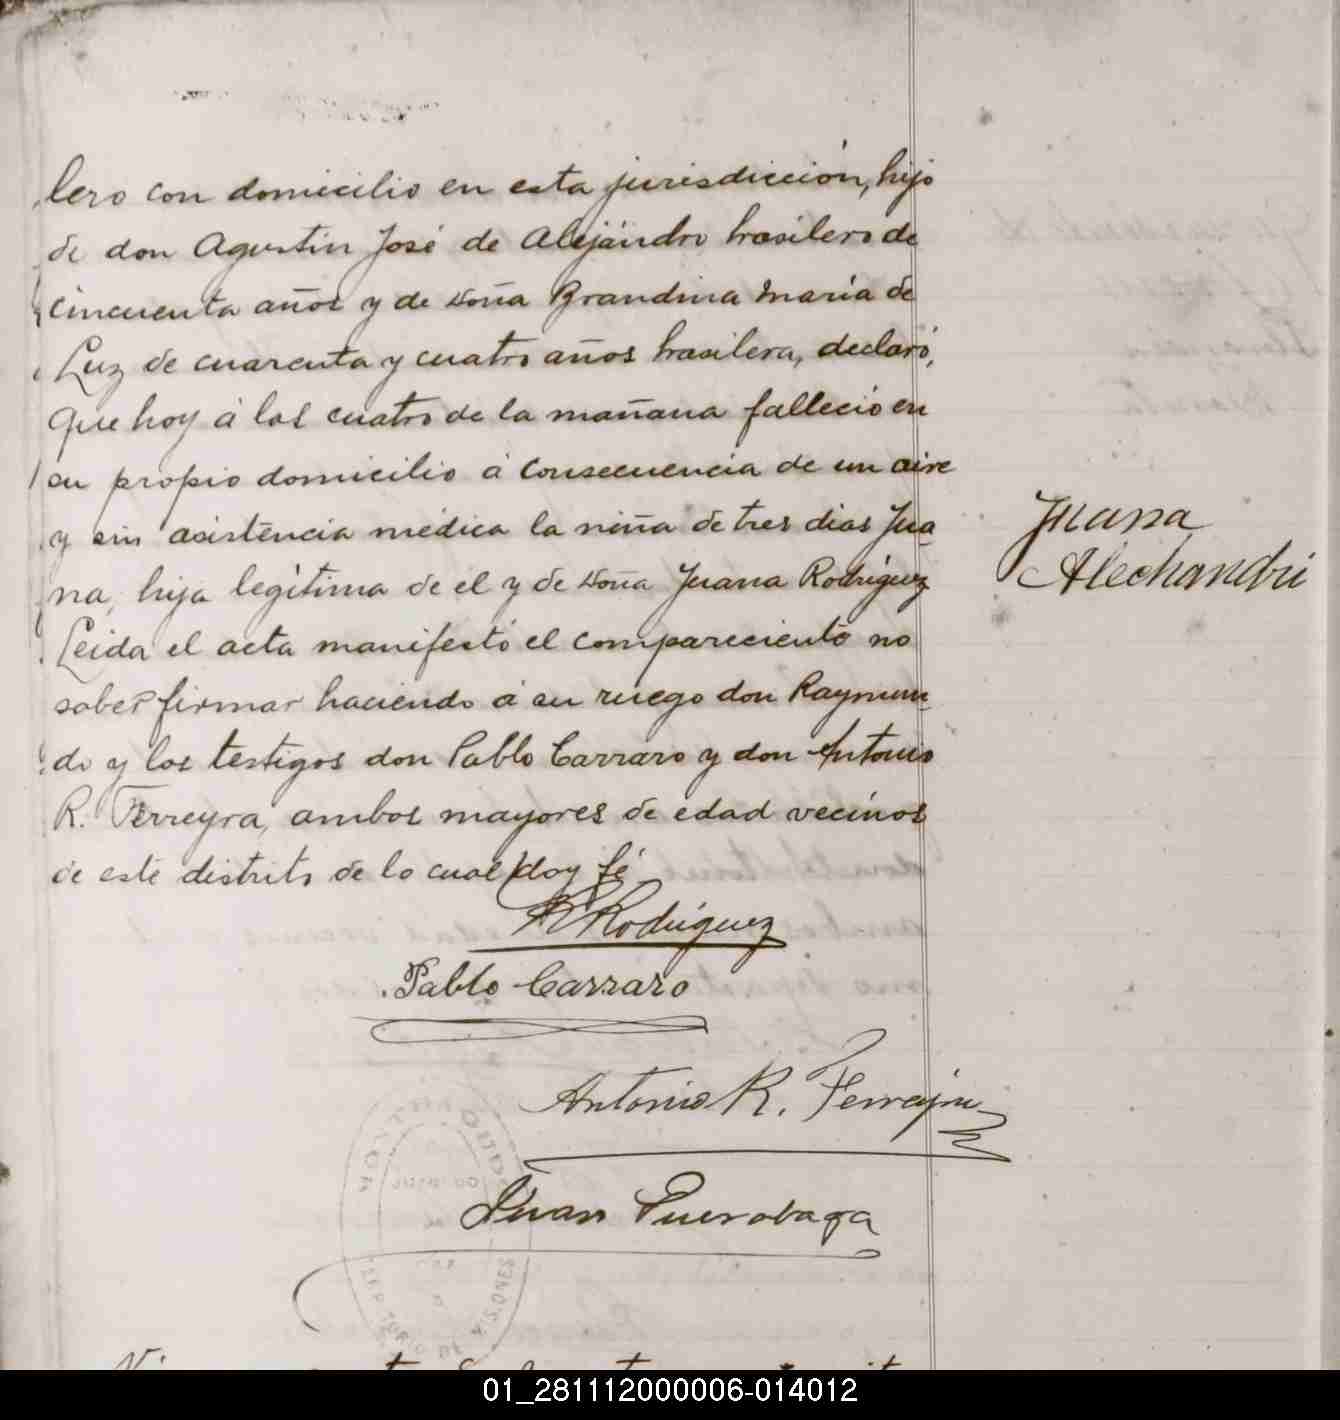 lero con domicilio en esta jurisdiccion, hijo
de don Agustin José de Alejándro brasilero de
cincuenta años y de doña Brandina María de
Luz de cuarenta y cuatro años brasilera, declaró,
que hoy á las cuatro de la mañana falleció en
su propio domicilio á consecuencia de un aire
y sin asistencia médica la niña de tres dias Jua-
na, hija legitima de el y de doña Juana Rodriguez
Leida el acta manifestó el compareciente no
saber firmar haciendo á su ruego don Raymun-
do y los testigos don Pablo Carraro y don Antonio
R. Ferreyra, ambos mayores de edad vecinos
de este distrito de lo cual doy fé
Juana
Alechandri
R Rodriguez
Pablo Carraro
Antonio R. Ferreyra
Juan
TERRITORIO DE MISIONES
01_281112000006-014012